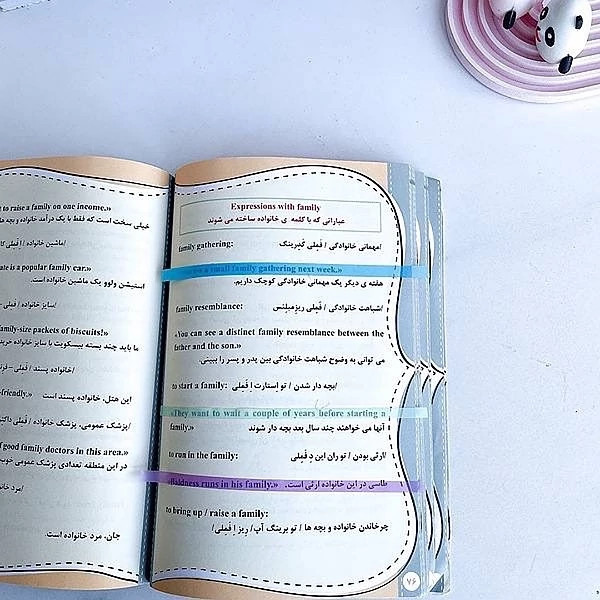 to raise a family on one income.»
خیلی سخت است که فقط با یک درآمد خانواده و بچه ها
/ماشین خانواده / فَمِلی
is a popular family car.»
استیشن ولوو یک ماشین خانواده است.
/سایز خانواده / فَمِلی
family-size packets of biscuits!»
ما باید چند بسته بیسکویت با سایز خانواده
/خانواده پسند /
friendly.» این هتل، خانواده پسند است.
/پزشک عمومی، پزشک خانواده /
good family doctors in this area.»
در این منطقه تعدادی پزشک عمومی
جان، مرد خانواده است.
Expressions with family
عباراتی که با کلمه ی خانواده ساخته می شوند
family gathering: /مهمانی خانوادگی / فَمِلی گَدِرینگ
a small family gathering next week.»
هفته ی دیگر یک مهمانی خانوادگی کوچک داریم.
family resemblance: /شباهت خانوادگی / فَمِلی ریزِمبِلِنس
«You can see a distinct family resemblance between the
father and the son.»
می توانی به وضوح شباهت خانوادگی بین پدر و پسر را ببینی.
to start a family: /بچه دار شدن / تو اِستارت اِ فَمِلی
«They want to wait a couple of years before starting a
family.» آنها می خواهند چند سال بعد بچه دار شوند
to run in the family: /ارثی بودن / تو ران این دِ فَمِلی
«Baldness runs in his family.» طاسی در این خانواده ارثی است.
to bring up / raise a family:
چرخاندن خانواده و بچه ها / تو برینگ آپ/ رِیز اِ فَمِلی/
۷۶